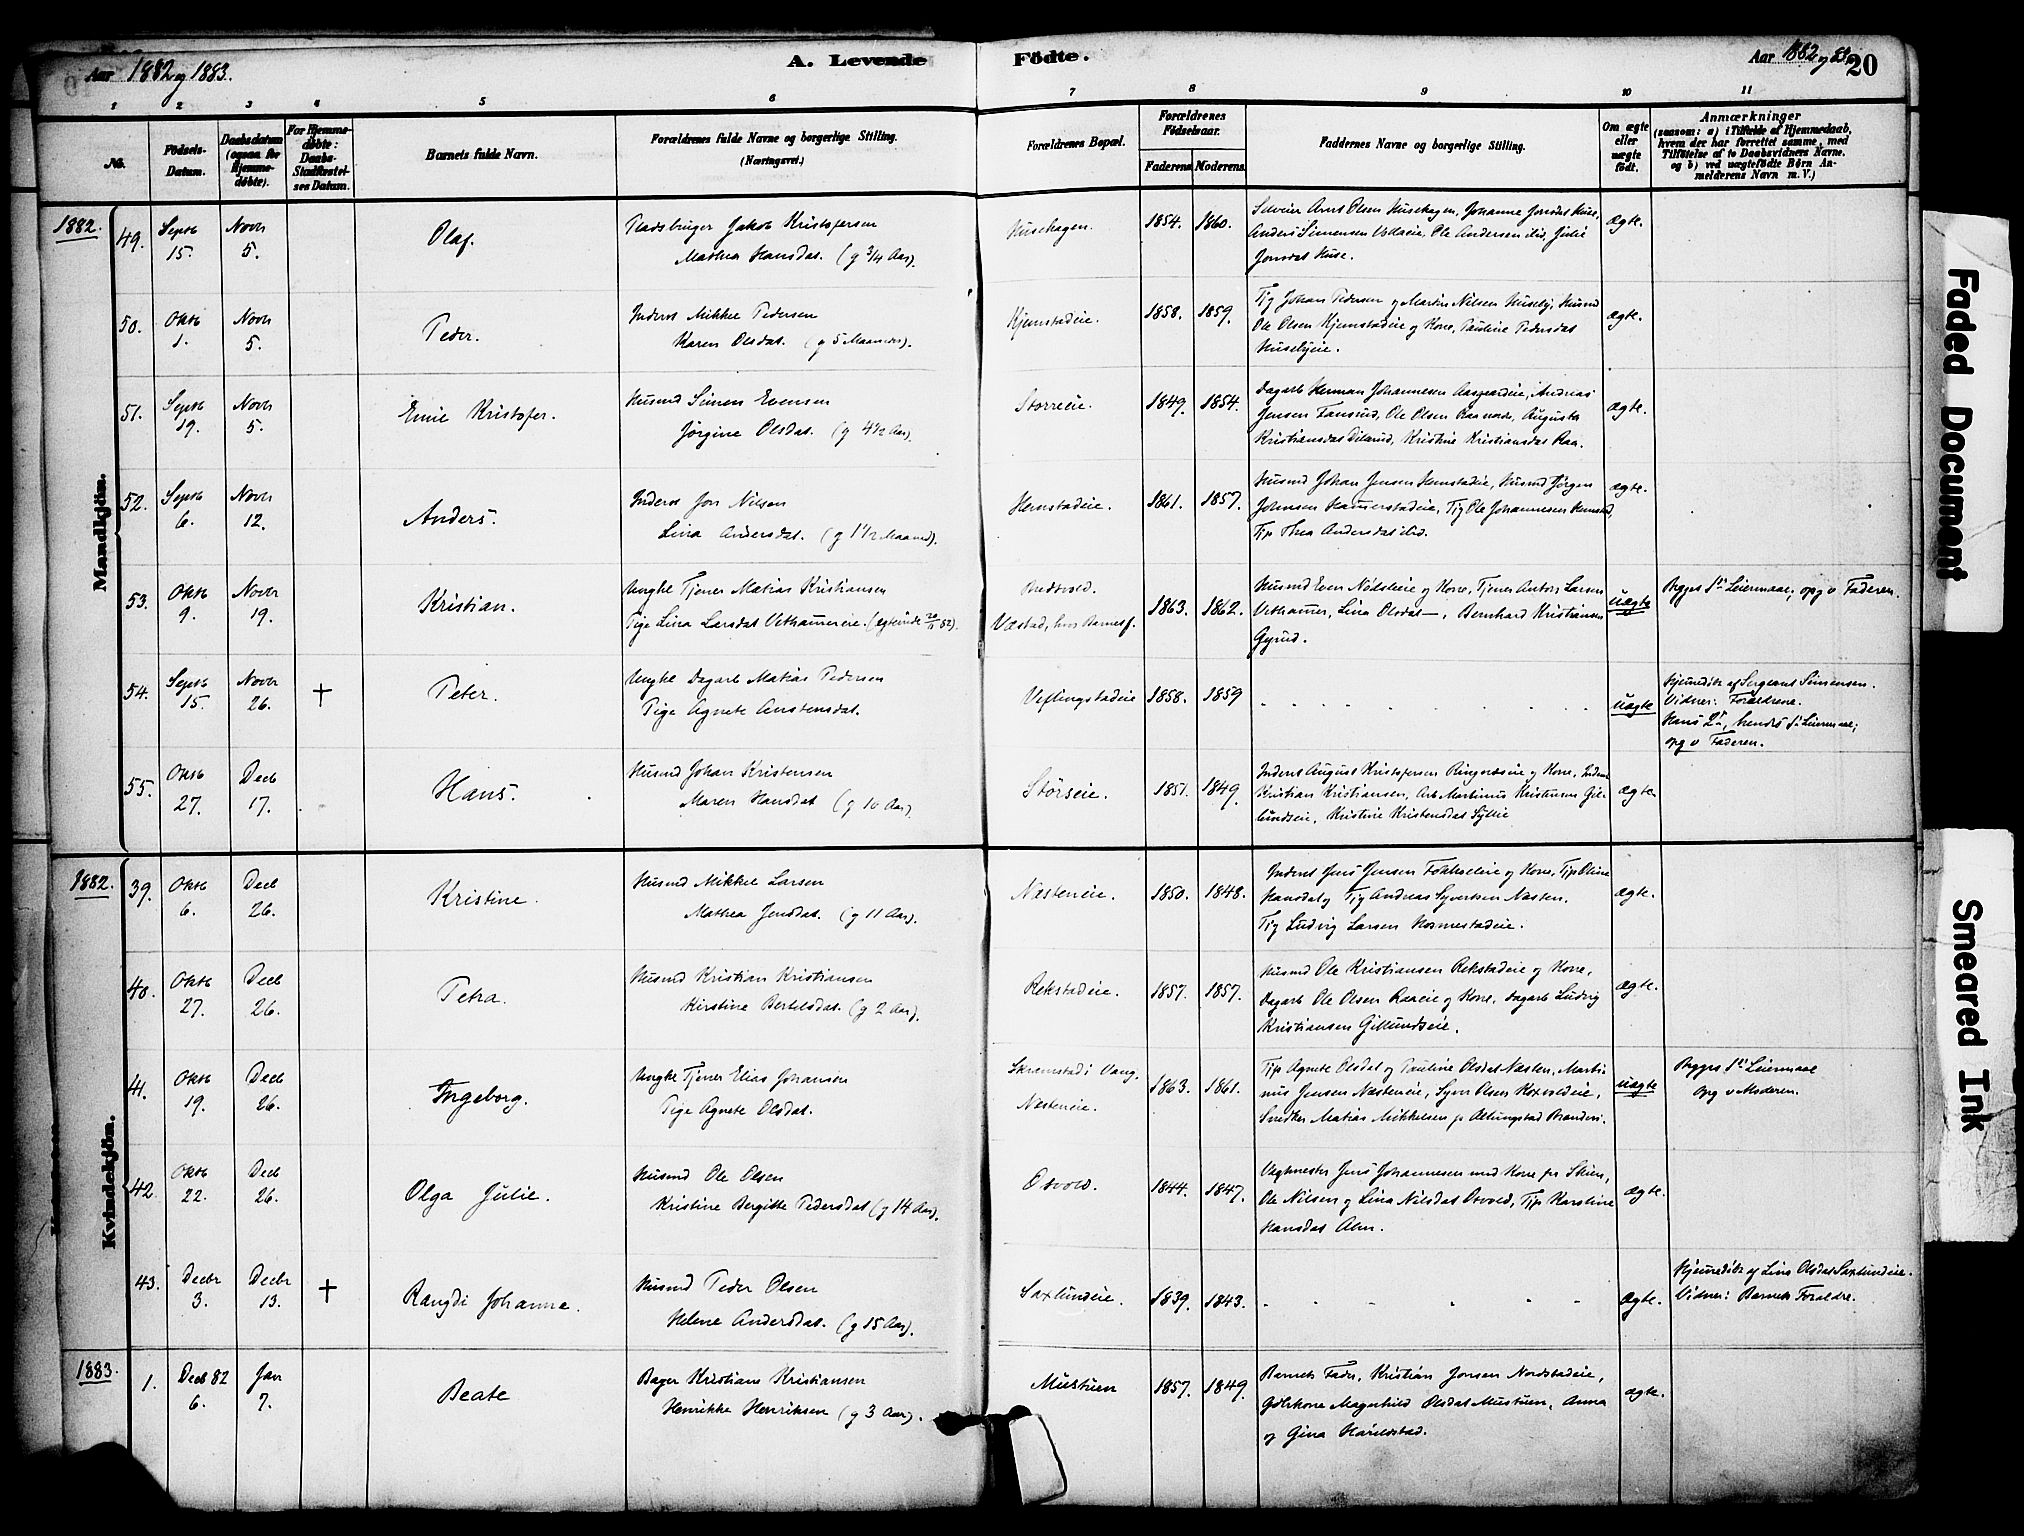 Aar 1882 og 1883.
A. Levende Födte.
Aar 1882 og 83.
20
1 2 3 4 5 6 7 8 9 10 11
No.
Födsels-Datum.
Daabsdatum (ogsaa for Hjemmedöbte).
For Hjemmedöbte: Daabs-Stadfæstelses Datum.
Barnets fulde Navn.
Forældrenes fulde Navne og borgerlige Stilling. (Næringsvei.)
Forældrenes Bopæl.
Forældrenes Födselsaar.
Faderens. Moderens.
Faddernes Navne og borgerlige Stilling.
Om ægte eller uægte født.
Anmærkninger
(saasom: a) i Tilfælde af Hjemmedaab, hvem der har forrettet samme, med Tilføielse af to Daabsvidners Navne, og b) ved uægtefödte Börn Anmelderens Navn m. V.)
Mandkjön.
1882.
49. Septb 15. Novb 5. Olaf. Pladsbruger Jakob Kristofersen
Mathea Hansdat. (g 3/4 Aar).
Husehagen. 1854. 1860.
Selveier Arnt Olsen Husehagen, Johanne Jonsdat Huse,
Anders Simensen, Ole Andersen ibid, Julie
Jonsdat Huse.
Ægte.
50. Oktb 1. Novb 5. Peder. Inderst Mikkel Pedersen
Karen Olsdat. (g 5 Maaneder).
Hjemstadeie. 1858. 1859.
Tjg Johan Pedersen og Martin Nilsen Huseby, Husmd
Ole Olsen Hjemstadeie og Kone, Pauline Pedersdat
Husebyeie.
Ægte.
51. Septb 19. Novb 5. Emil Kristofer. Husmd Simen Evensen
Jörgine Olsdat. (g 4 1/2 Aar).
Storreie. 1849. 1854.
Dagarb Herman Johannesen Aasgardeie, Andreas
Jensen Fansrud, Ole Olsen Raanorde, Augusta
Kristiansdat Dilerud, Kristine Kristiansdat Raa.
Ægte.
52. Septb 6. Novb 12. Anders. Inderst Jon Nilsen
Lina Andersdat. (g 1 1/2 Maaned).
Hemstadeie. 1861. 1857.
Husmd Johan Jensen Hemstadeie, Husmd Jörgen
Johnsen Hammerstadeie, Tjg Ole Johannesen Hemstad,
Tjp Thea Andersdat ibid.
Ægte.
53. Oktb 9. Novb 19. Kristian. Ungkl Tjener Matias Kristiansen
Pige Lina Larsdat Vethammereie.
Bredtvold.
Vestad, hos Barnesf. 1863. 1862.
Husmd Even Nödsleie og Kone, Tjener Anton Larsen
Vethammer, Lina Olsdat —, Bernhard Kristiansen
Gyrud.
Uægte
Begges 1ste Leiermaal, opg v Faderen.
54. Septb 15. Novb 26. † Peter. Ungkl Dagarb Matias Pedersen
Pige Agnete Arnstensdat.
Veflingstadeie 1858. 1859
Uægte
Hjemmedöbt af Sergeant Simensen.
Vidner: Forældrene.
Hans 2det, hendes 1ste Leiermaal;
opg v Faderen.
55. Oktb 27. Decb 17. Hans. Husmd Johan Kristensen
Maren Hansdat (g 10 Aar).
Störseie. 1851. 1849.
Inderst August Kristofersen Ringnæseie og Kone, Inderst
Kristian Kristiansen, Arb Martinus Kristiansen Gil-
lundseie, Kristine Kristensdat Syllie
Ægte
Kvindekjön.
1882.
39. Oktb 6. Decb 26. Kristine. Husmd Mikkel Larsen
Mathea Jensdat. (g 11 Aar).
Nasteneie. 1850. 1848.
Inderst Jens Jensen Fokholeie og Kone, Tjp Oline
Hansdat og Tjg Andreas Syvertsen Nasten.
Tjg Ludvig Larsen Hosmestadeie.
Ægte.
40. Oktb 27. Decb 26. Petra. Husmd Kristian Kristiansen
Kirstine Bertelsdat. (g 2 Aar).
Rekstadeie. 1857. 1857.
Husmd Ole Kristiansen Rekstadeie og Kone,
Dagarb Ole Olsen Raaeie og Kone, Dagarb Ludvig
Kristiansen Gillundseie.
Ægte.
41. Oktb 19. Decb 26. Ingeborg. Ungkl Tjener Elias Johansen
Pige Agnete Olsdat.
Skramstad i Vang.
Nasteneie. 1863. 1861.
Tjp Agnete Olsdat og Pauline Olsdat Nasten, Marti-
nus Jensen Nasteneie, Syver Olsen Koxvoldeie,
Snedker Matias Mikkelsen
Uægte
Begges 1ste Leiermaal
opg v Moderen.
42. Oktb 22. Decb 26. Olga Julie. Husmd Ole Olsen
Kristine Bergitte Pedersdat (g 14 Aar).
Osvold. 1844. 1847.
Vagtmester Jens Johannesen med Kone fra Skien,
Ole Nilsen og Lina Nilsdat Osvold, Tjp Karoline
Hansdat Alm.
Ægte.
43. Decbr 3. Decbr 13. † Rangdi Johanne. Husmd Peder Olsen
Helene Andersdat. (g 15 Aar).
Saxlundeie. 1839. 1843.
Ægte.
Hjemmedöbt af Lina Olsdat Saxlundeie.
Vidner: Barnets Forældre.
1883.
1. Decb 82 6. Jan 7. Beate Bager Kristiane Kristiansen
Henrikke Henriksen (g 3 Aar).
Mustuen 1857. 1849.
Barnets Fader, Kristian Jonsen Nordstadeie,
Gaardkone Magnhild Olsdat Mustuen, Anna
og Gina
Ægte.
Faded Document
Smeared Ink